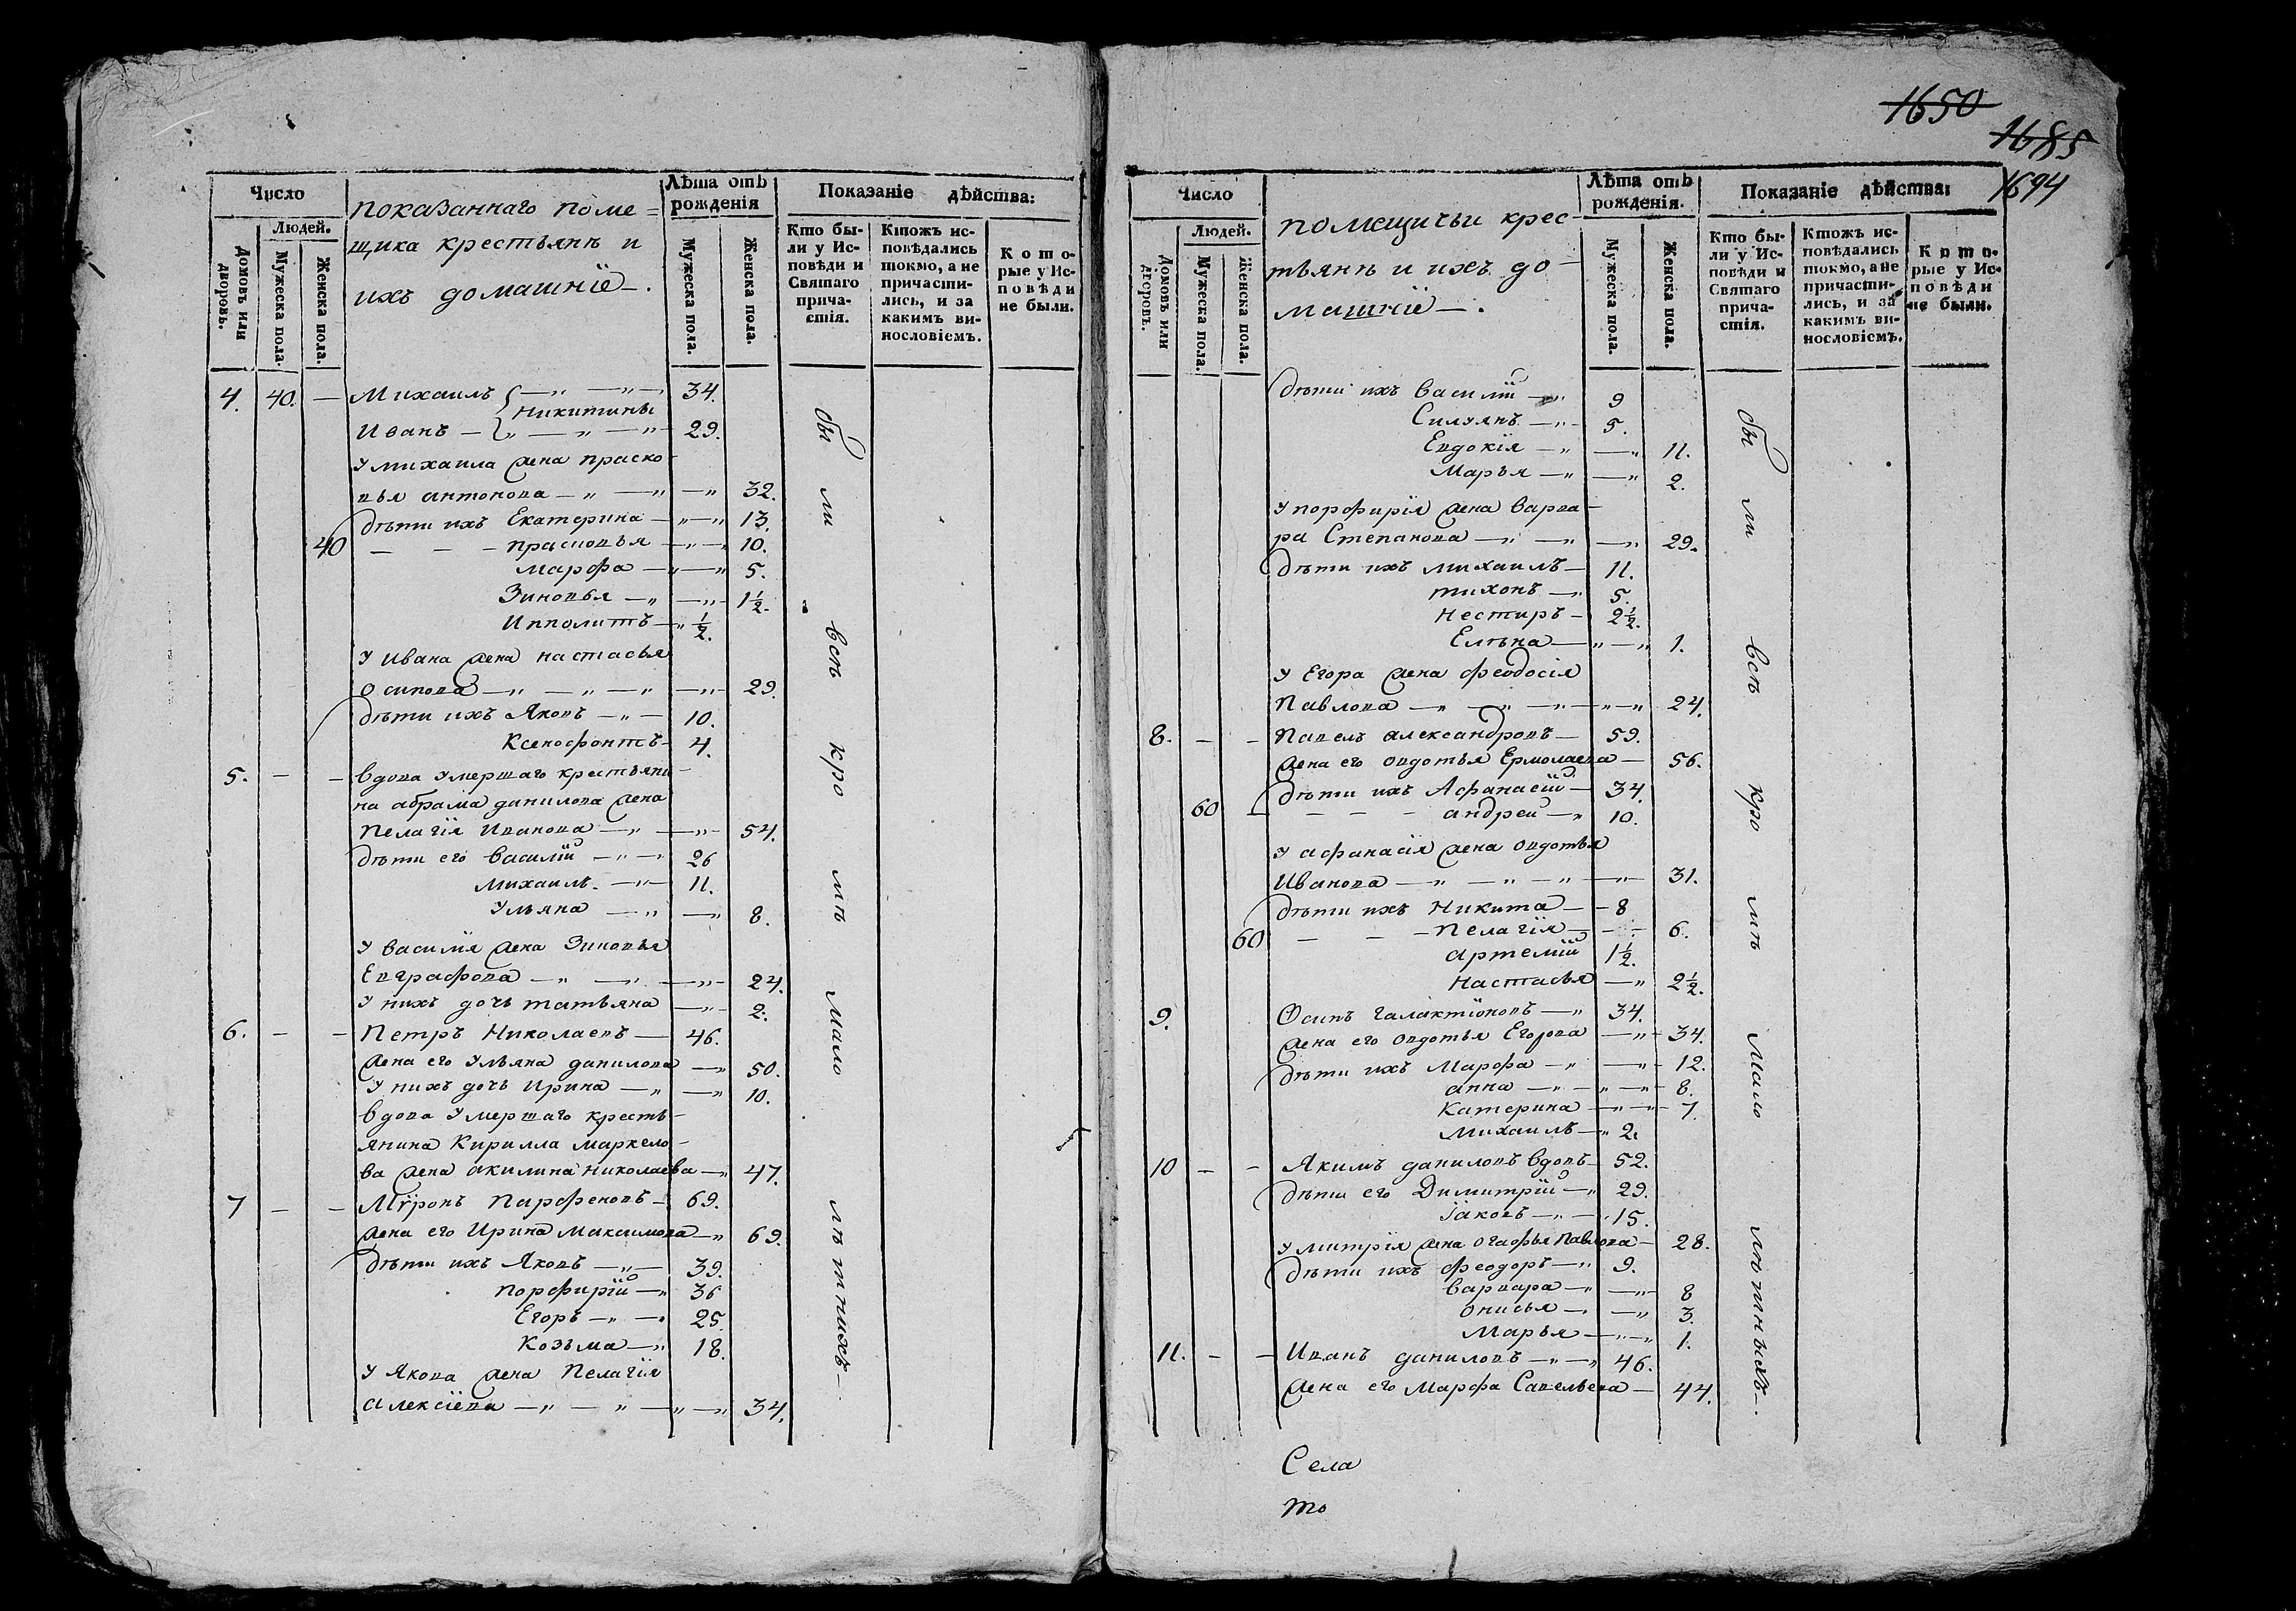 1650
1685
1694
Число
показаннаго поме=
щика крестьянъ и
ихъ домашнiе
Лѣта отъ рожденiя
Показанiе дѣйства:
Людей.
Домовъ или дворовъ.
Мужеска пола.
Женска пола.
Мужеска пола.
Женска пола.
Кто бы-
ли у Ис-
повѣди и
Святаго
прича-
стiя.
Ктожъ ис-
повѣдались
токмо, а не
причасти-
лись, и за
какимъ ви-
нословiемъ.
К о т о-
рые у Ис-
п о в ѣ д и
не были.
4. 40. — Михаилъ — 34.
Никитины
Иванъ — 29.
У михаила жена праско-
вья антонова — 32.
дѣти ихъ Екатерина — 13.
40 — — — прасковья — 10.
марфа — 5.
Зиновья — 1½.
Ипполитъ — ½.
У Ивана жена настасья
осипова — 29.
дѣти ихъ Яковъ — 10.
Ксенофонтъ — 4.
5. — — вдова умершаго крестьяни-
на абрама данилова жена
Пелагiя Иванова — 54.
дѣти его василiй — 26
михаилъ. — 11.
Ульяна — 8.
У василiя жена Зиновья
Евграфова — 24.
У нихъ дочь татьяна — 2.
6. — — Петръ Николаевъ — 46.
жена его Ульяна данилова — 50.
У нихъ дочь Ирина — 10.
вдова умершаго кресть-
янина Кирилла маркело-
ва жена акилина николаева — 47.
7 — — Мѵронъ Парфеновъ — 69.
жена его Ирина максимова — 69.
дѣти ихъ Яковъ — 39.
порфирiй — 36
Егоръ — 25.
Козьма — 18.
У Якова жена Пелагiя
алексiева — 34.
бы ли всѣ кро мѣ мало лѣтнихъ
Число
помещичьи крес-
тьянъ и ихъ до-
машнiе — .
Лѣта отъ рожденiя.
Показанiе дѣйства:
Людей.
Домовъ или дворовъ.
Мужеска пола.
Женска пола.
Мужеска пола.
Женска пола.
Кто бы-
ли у Ис-
повѣди и
Святаго
прича-
стiя.
Ктожъ ис-
повѣдались
токмо, а не
причасти-
лись, и за
какимъ ви-
нословiемъ.
К о т о-
рые у Ис-
п о в ѣ д и
не были.
дѣти ихъ василiй — 9
Силуянъ — 5.
Евдокiя — 11.
Марья — 2.
У порфирiя жена варва-
ра Степанова — 29.
дѣти ихъ михаилъ — 11.
тихонъ — 5.
нестиръ — 2½.
Елѣна — 1.
У Егора жена феодосiя
Павлова — 24.
8. — — Павелъ александровъ — 59.
жена его овдотья Ермолаева — 56.
дѣти ихъ Афанасiй — 34.
60 — — — андрей — 10.
У афанасiя жена овдотья
Иванова — 31.
дѣти ихъ Никита — 8
60 — — — Пелагiя — 6.
артемiй 1½.
Настасья — 2½.
9. Осипъ Галактiоновъ — 34.
жена его овдотья Егорова — 34.
дѣти ихъ Марфа — 12.
анна — 8.
Катерина — 7.
Михаилъ — 2.
10 — — Якимъ даниловъ вдовъ — 52.
дѣти его Димитрiй — 29.
iаковъ — 15.
У митрiя жена огафья Павлова — 28.
дѣти ихъ феодоръ — 9.
варвара — 8
онисья — 3.
Марья — 1.
11. — — Иванъ даниловъ — 46.
жена его Марфа Савельева — 44.
бы ли всѣ кро мѣ мало лѣтныхъ — .
Села
то